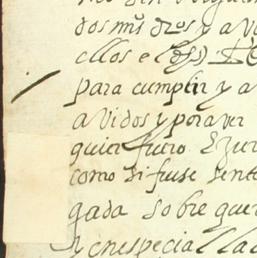 dos mis dros y a v
ellos e
para cumplir y a
avidos y por aver
quier fuero E Jur
como si fuese sente
gada sobre que
y en espeçial la